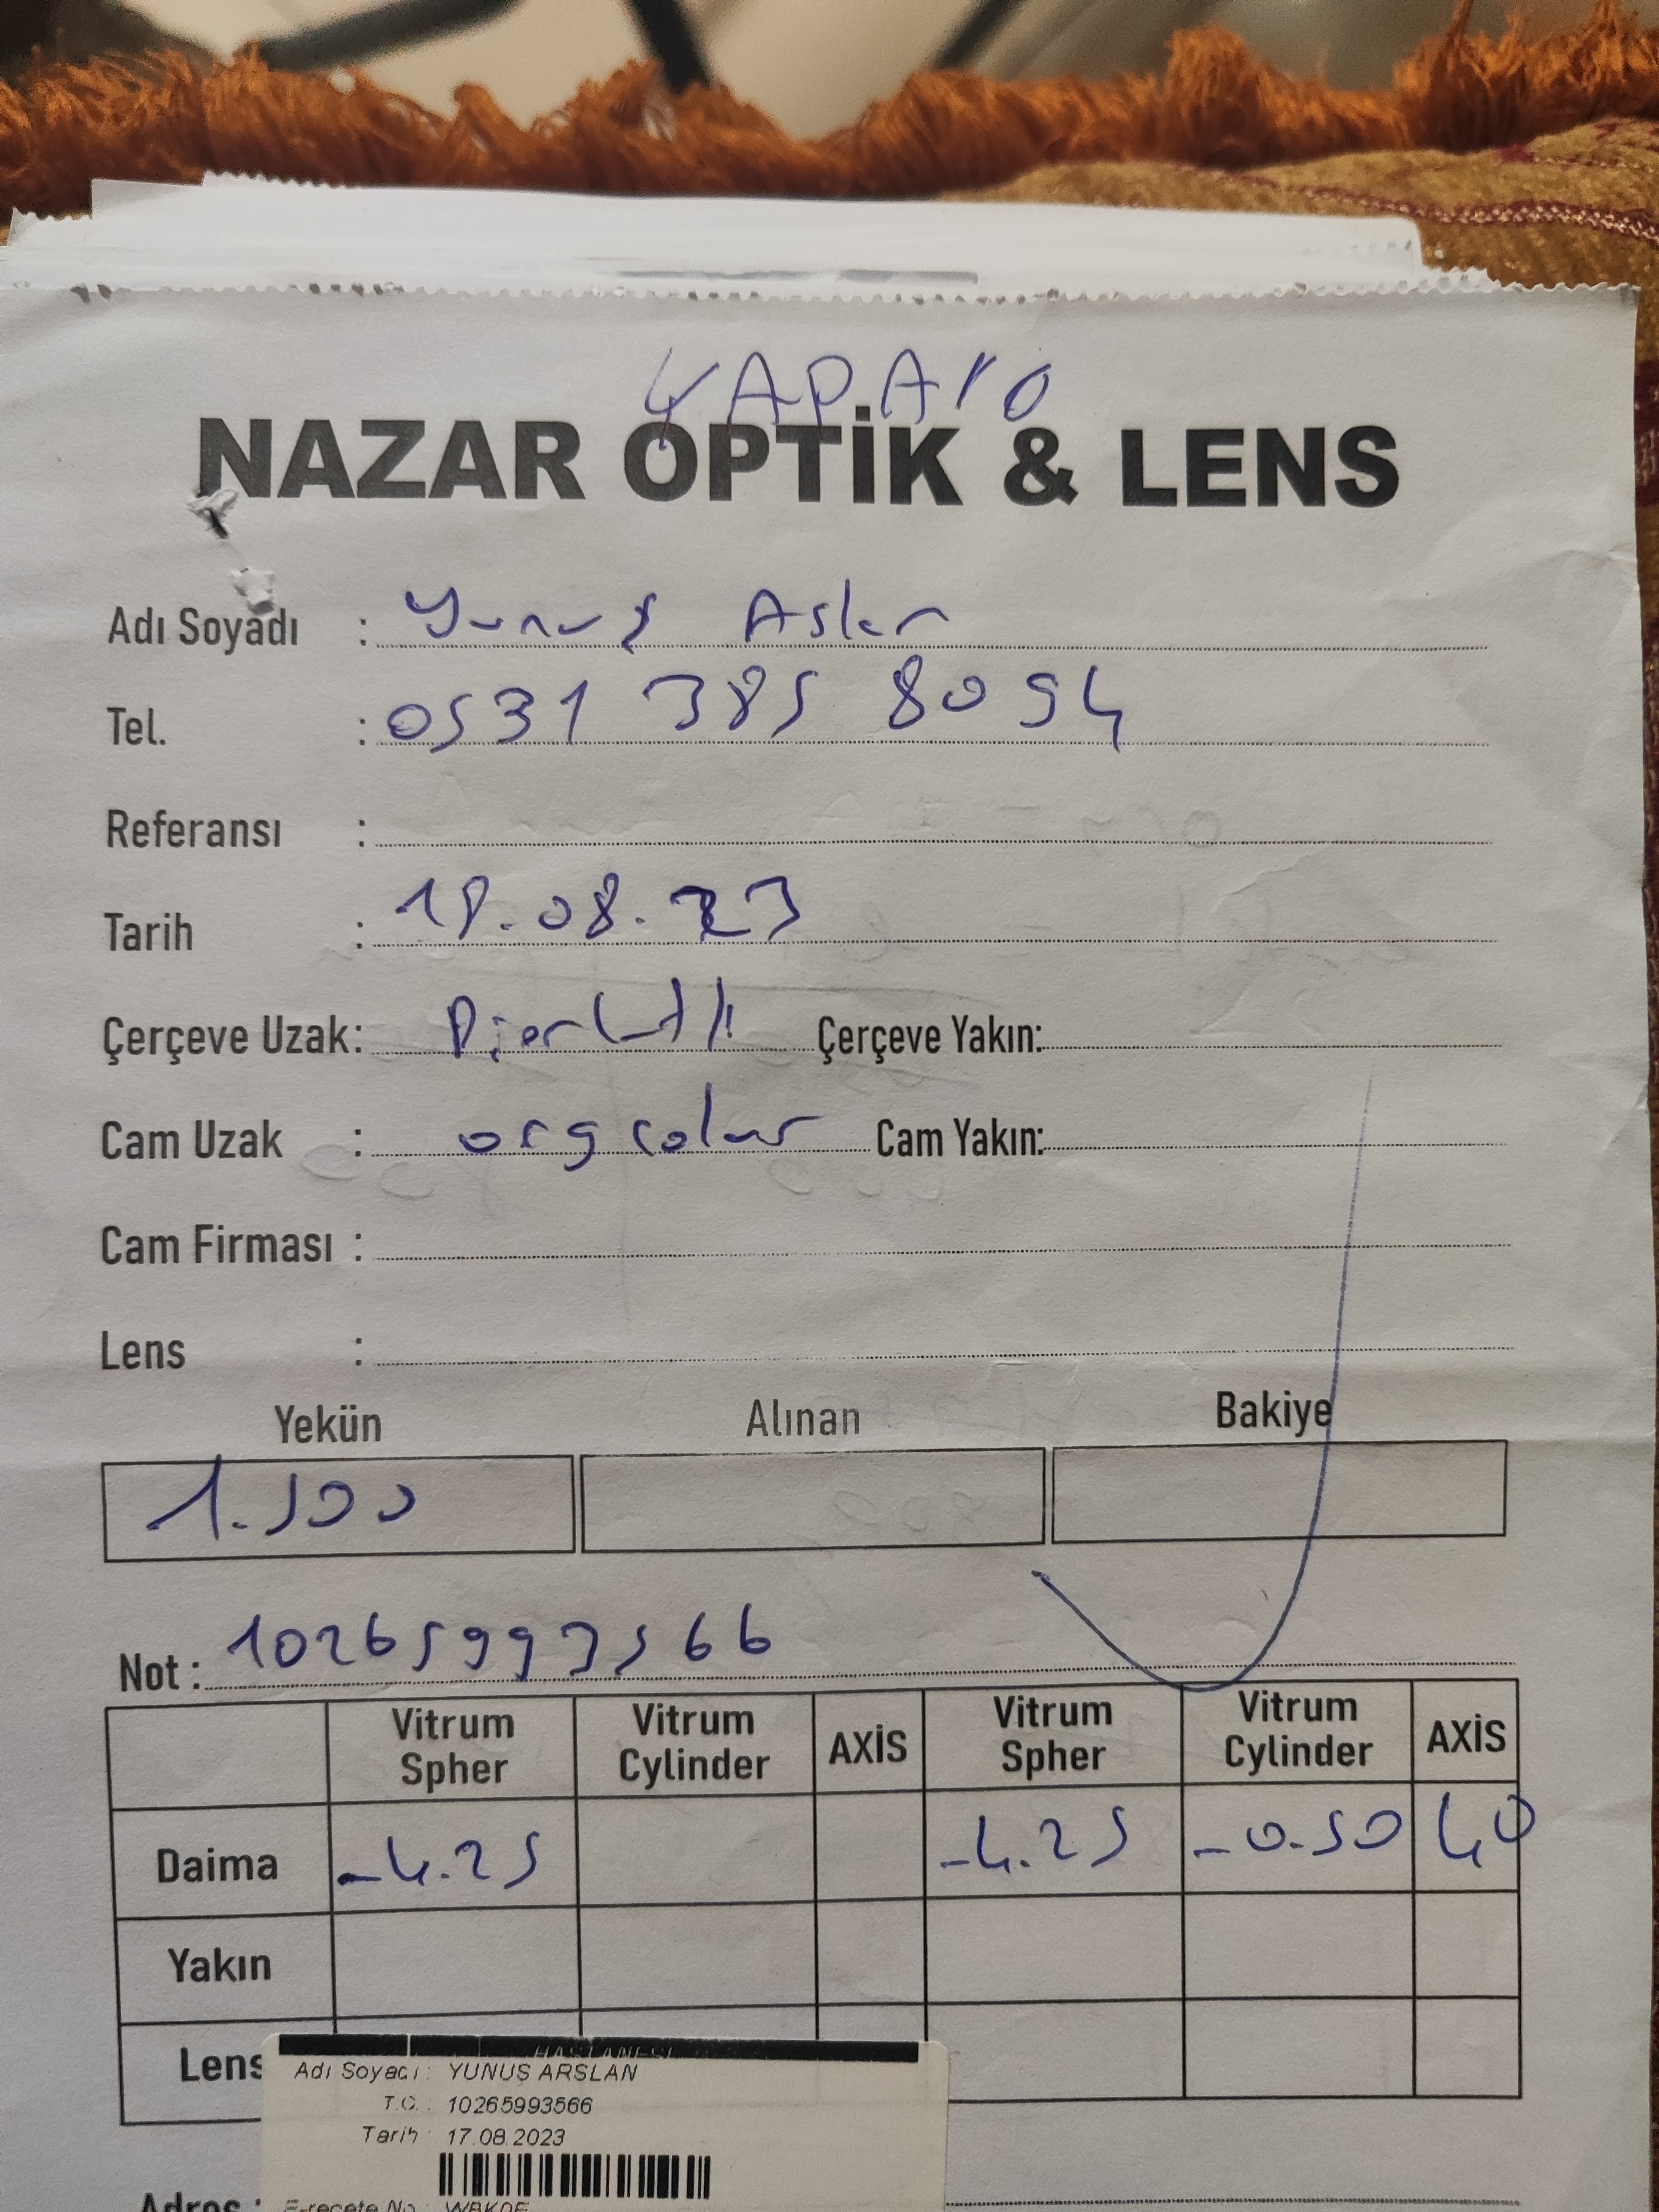 NAZAR OPTİK & LENS
Adı Soyadı : Yunus Aslan
Tel. : 0531 385 8094
Referansı :
Tarih : 18.08.23
Çerçeve Uzak: Çerçeve Yakın:
Cam Uzak : org colar Cam Yakın:
Cam Firması :
Lens :
Yekün Alınan Bakiye
1.500
Not : 10265993566
Vitrum Spher Vitrum Cylinder AXİS Vitrum Spher Vitrum Cylinder AXİS
Daima -4.25 -4.25 -0.50 40
Yakın
Lens
HASTANESİ
Adı Soyadı : YUNUS ARSLAN
T.C. : 10265993566
Tarih : 17.08.2023
E-reçete No :
Adres :